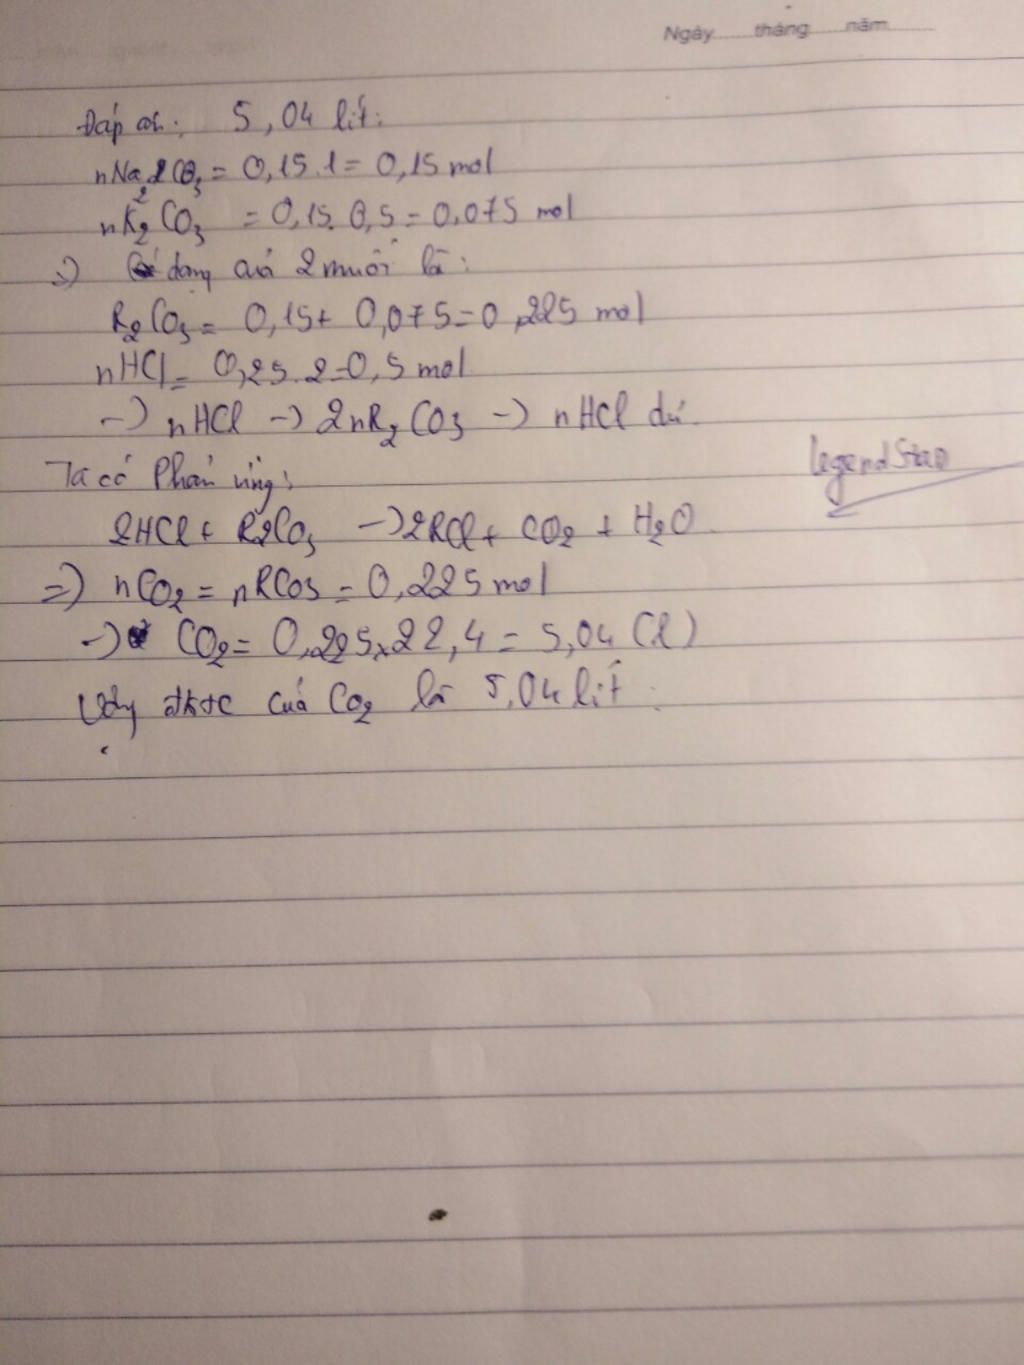 Ngày......tháng......năm......
Đáp án: 5,04 lít:
nNa2CO3 = 0,15.1 = 0,15 mol
nK2CO3 = 0,15.0,5 = 0,075 mol
=) dạng của 2 muối là:
R2CO3 = 0,15+ 0,075=0,225 mol
nHCl = 0,25.2=0,5 mol
-) nHCl -) 2nR2CO3 -) nHCl dư.
Ta có Phản ứng:
LegendStar
2HCl + R2CO3 -) 2RCl + CO2 + H2O
=) nCO2 = nRCO3 = 0,225 mol
-) CO2 = 0,225x22,4 = 5,04 (l)
Vậy của CO2 là 5,04 lít.